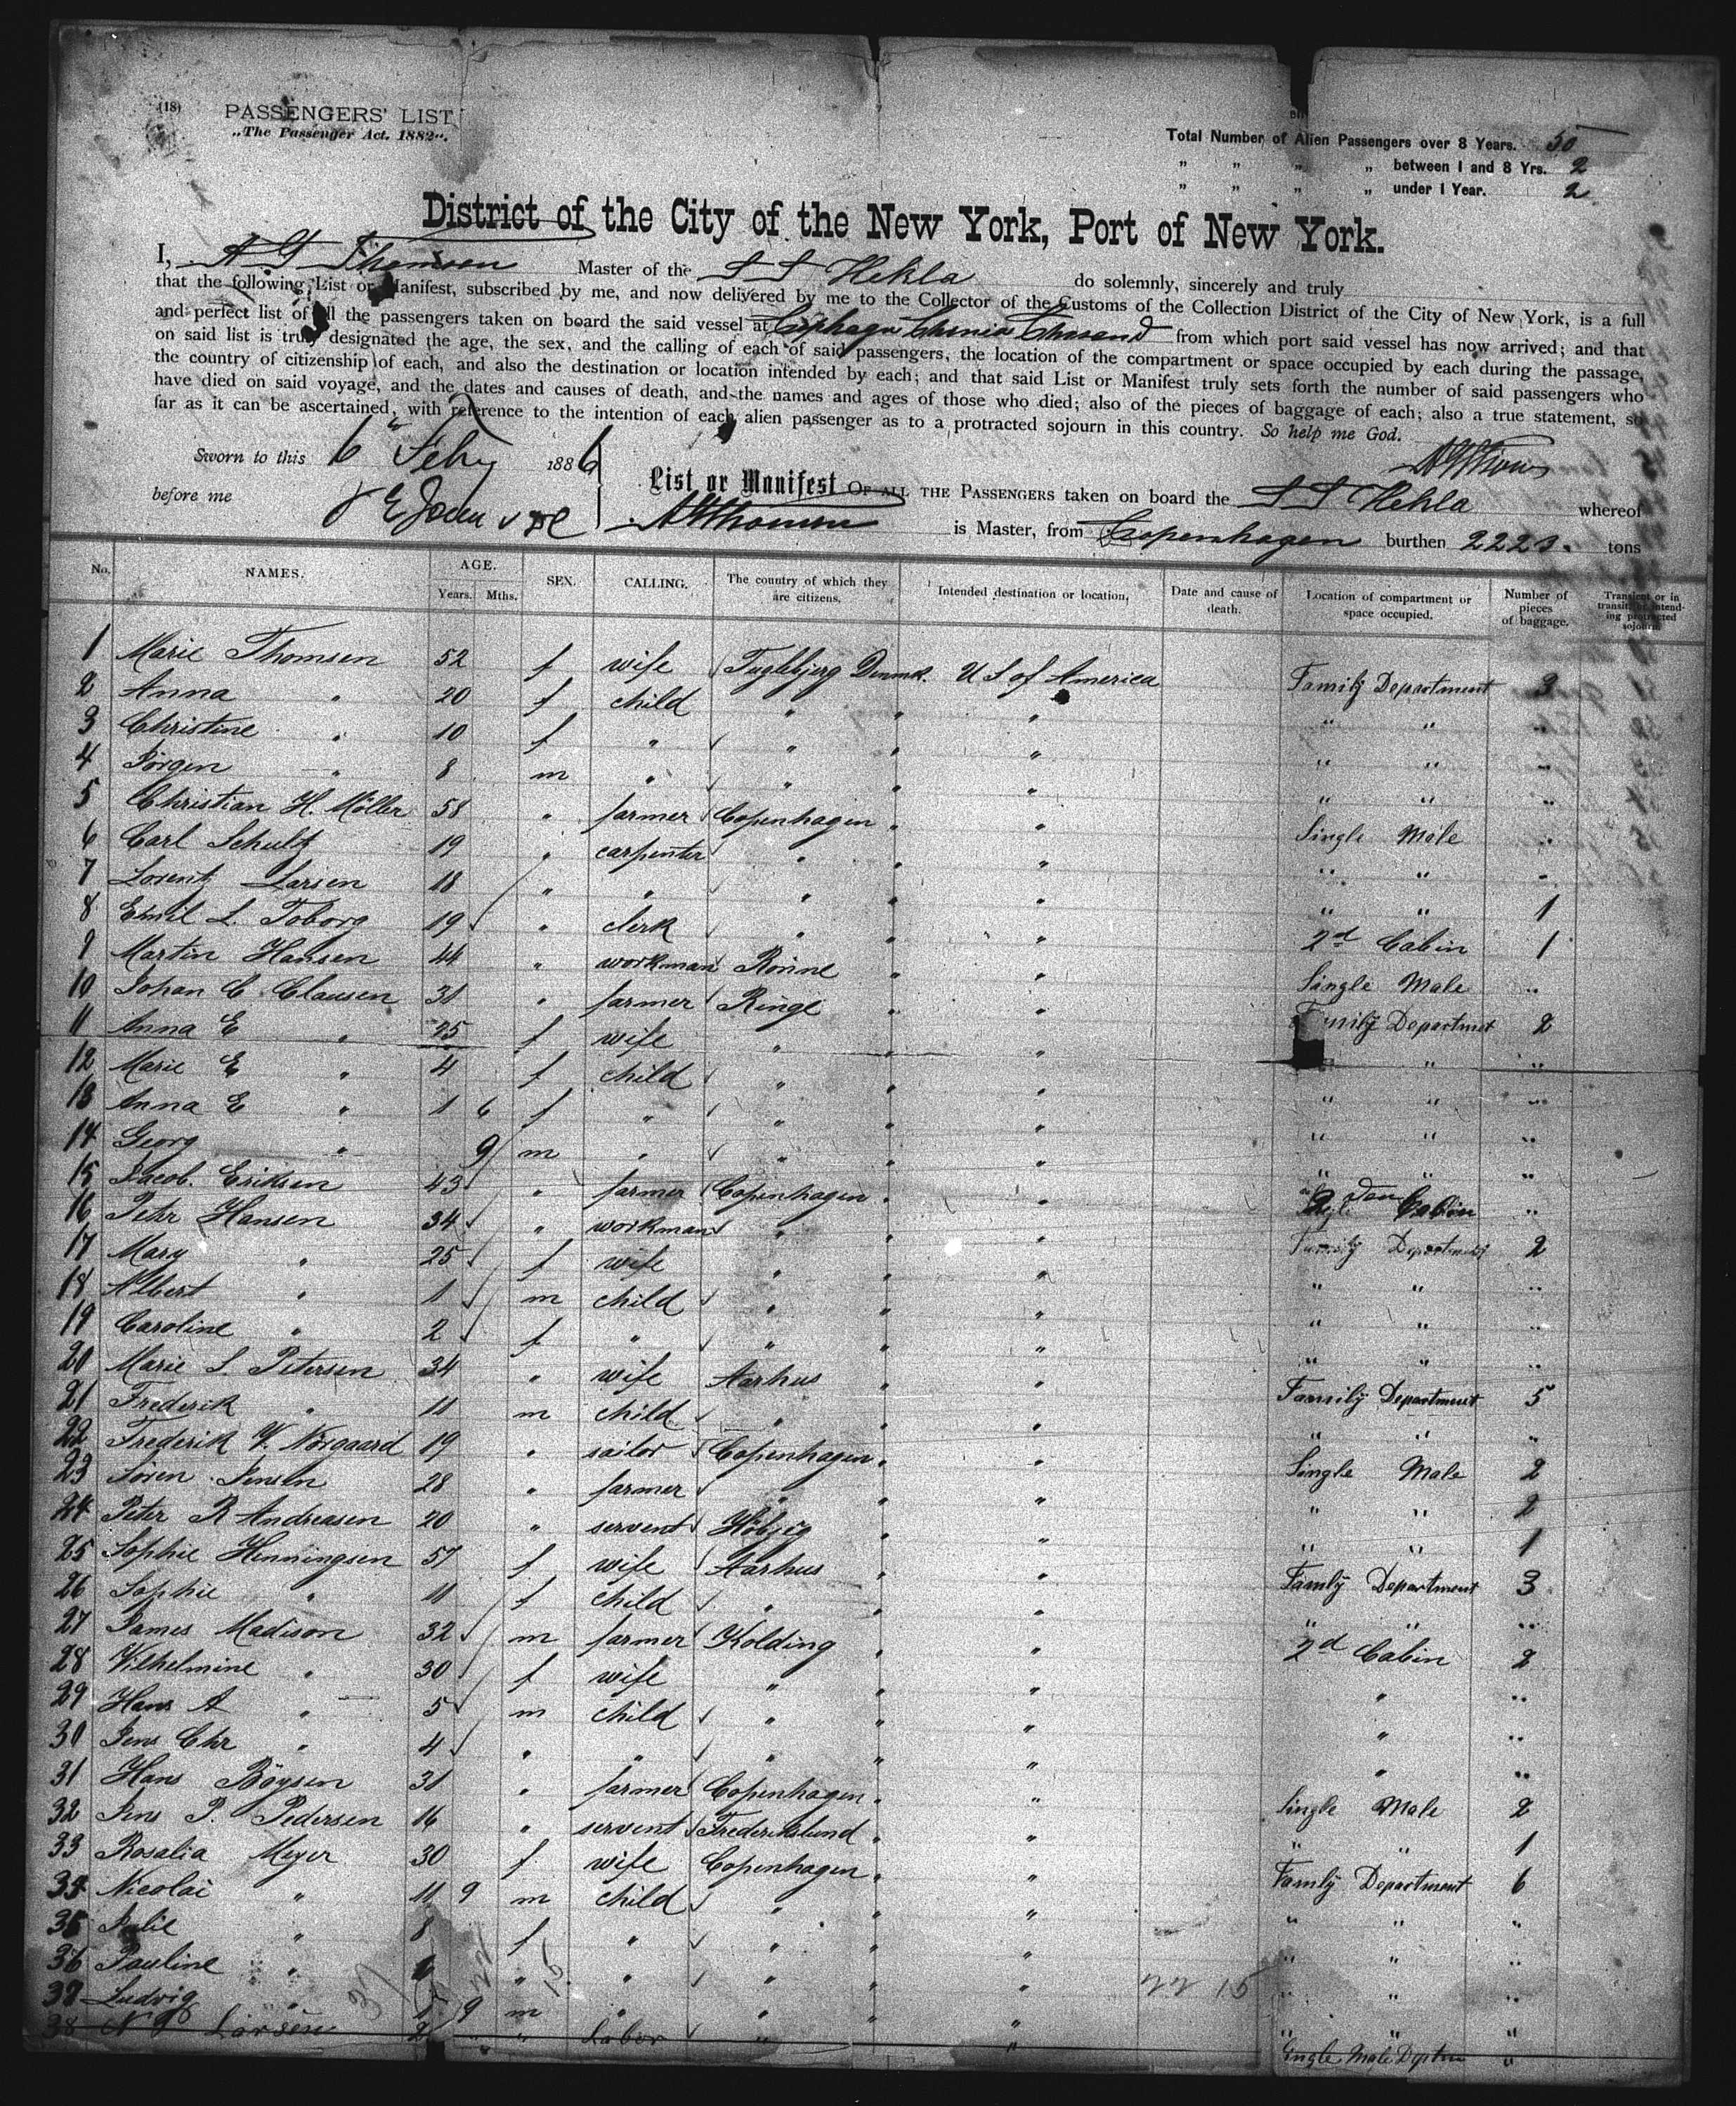 (18)
PASSENGERS' LIST
„The Passenger Act. 1882“.
Total Number of Alien Passengers over 8 Years. 50
„ „ „ „ between 1 and 8 Yrs. 2
„ „ „ „ under 1 Year. 2.
District of the City of the New York, Port of New York.
I, Thomsen Master of the S S Hekla do solemnly, sincerely and truly
that the following List or Manifest, subscribed by me, and now delivered by me to the Collector of the Customs of the Collection District of the City of New York, is a full
and perfect list of all the passengers taken on board the said vessel at from which port said vessel has now arrived; and that
on said list is truly designated the age, the sex, and the calling of each of said passengers, the location of the compartment or space occupied by each during the passage,
the country of citizenship of each, and also the destination or location intended by each; and that said List or Manifest truly sets forth the number of said passengers who
have died on said voyage, and the dates and causes of death, and the names and ages of those who died; also of the pieces of baggage of each; also a true statement, so
far as it can be ascertained, with reference to the intention of each alien passenger as to a protracted sojourn in this country. So help me God.
Sworn to this 6th Feby 1886
before me
List or Manifest OF ALL THE PASSENGERS taken on board the S S Hekla whereof
is Master, from Copenhagen burthen 2223. tons
No. NAMES. AGE. Years. Mths. SEX. CALLING. The country of which they are citizens. Intended destination or location, Date and cause of death. Location of compartment or space occupied. Number of pieces of baggage. Transient or in transit, or intending protracted sojourn
1 Marie Thomsen 52 f wife Denmk. U S of America Family Department 3
2 Anna " 20 f child " " " " " "
3 Christine " 10 f " " " " " " "
4 Jörgen " 8 m " " " " " " "
5 Christian H. Möller 58 " farmer Copenhagen " " Single Male "
6 Carl Schultz 19 " carpenter " " " " " "
7 Lorentz Larsen 18 " " " " " " " 1
8 Emil L. Toborg 19 " clerk " " " 2nd Cabin 1
9 Martin Hansen 44 " workman Rönne " " Single Male "
10 Johan C. Clausen 31 " farmer Ringe " " Family Departmet 2
11 Anna E " 25 f wife " " " " "
12 Marie E " 4 f child " " " " " "
13 Anna E " 1 6 f " " " " " " "
14 Georg " 9 m " " " " " " "
15 Jacob Eriksen 43 " farmer Copenhagen " " Cabin "
16 Pehr Hansen 34 " workman " " " Family Department 2
17 Mary " 25 f wife " " " " " "
18 Albert " 1 m child " " " " " "
19 Caroline " 2 f " " " " " " "
20 Marie S. Petersen 34 " wife Aarhus " " Family Department 5
21 Frederik " 11 m child " " " " " "
22 Frederik W. Nörgaard 19 " sailor Copenhagen " " Single Male 2
23 Sören Jensen 28 " farmer " " " " " 2
24 Peter R Andreasen 20 " servent " " " " 1
25 Sophie Henningsen 57 f wife Aarhus " " Family Department 3
26 Sophie " 11 f child " " " " " "
27 James Madison 32 m farmer Kolding " " 2d Cabin 2
28 Vilhelmine " 30 f wife " " " " "
29 Hans A " 5 m child " " " " "
30 Jens Chr " 4 " " " " " " "
31 Hans Böysen 31 " farmer Copenhagen " " Single Male 2
32 Jens P. Pedersen 16 " servent Frederikslund " " " " 1
33 Rosalia Meyer 30 f wife Copenhagen " " Family Department 6
34 Nicolai " 11 9 m child " " " " " "
35 Julie " 8 f " " " " " " "
36 Pauline " " " " " " " " "
37 Ludvig " 9 m " " " " " " "
38 Larsen " Labor " " Single Male "
22 15